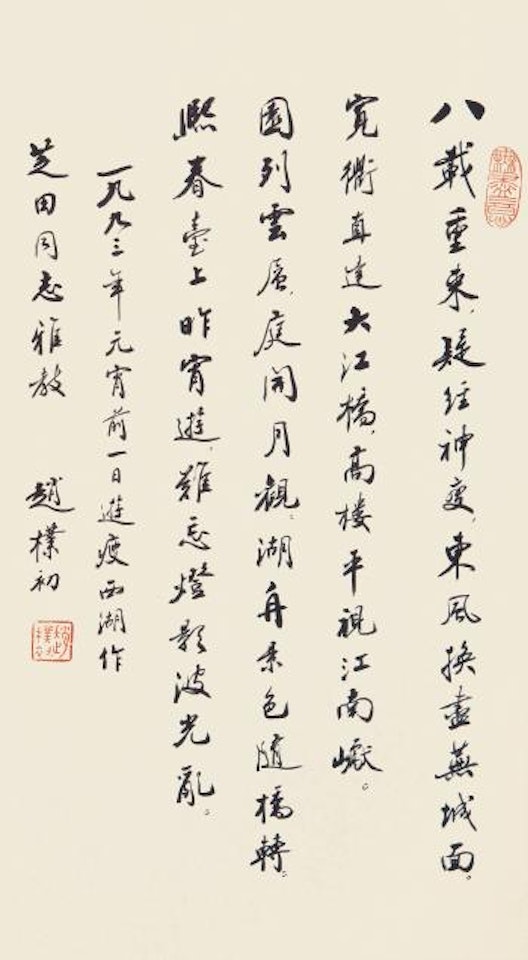 八載重來,疑經神變,東風換盡蕪城面。
寬衢直達大江橋,高樓平視江南巘。
園列雲,庭開月觀。湖舟景色隨橋轉。
熙春臺上昨宵遊,難忘燈影波光亂。
一九九三年元宵前一日遊瘦西湖作
芝田同志雅教 趙樸初
無盡意
趙樸初